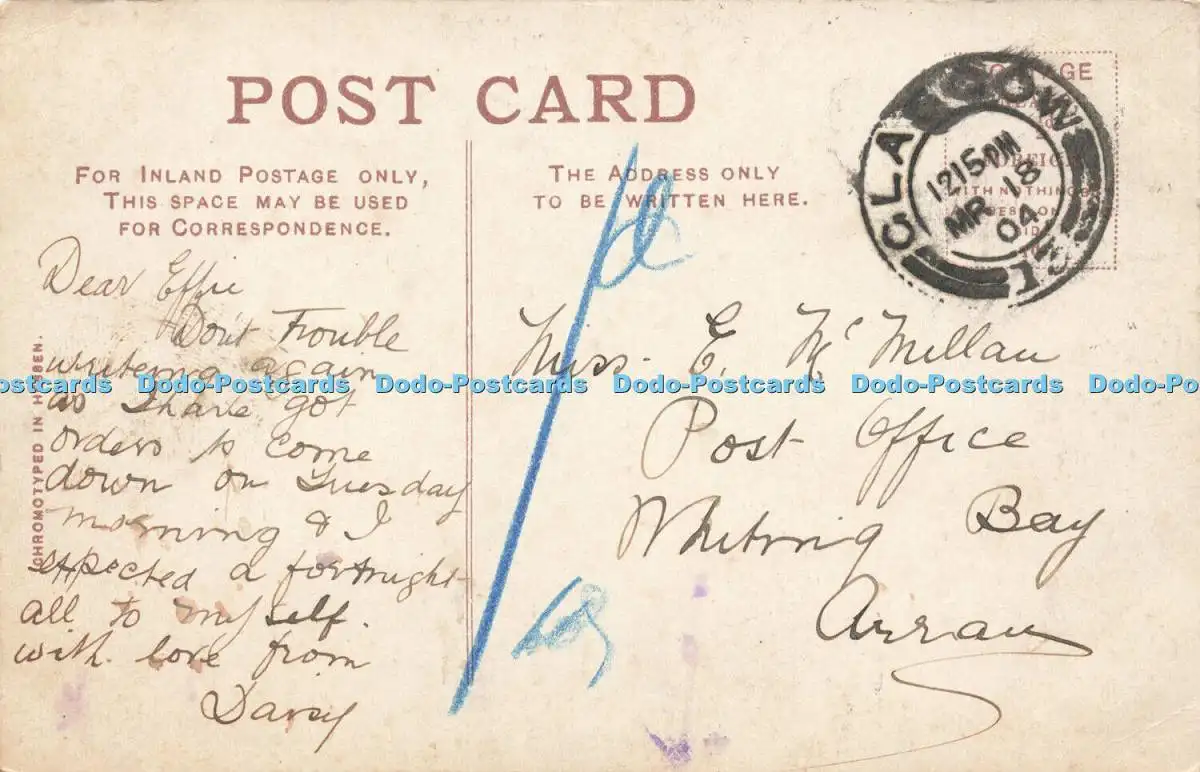 POST CARD
FOR INLAND POSTAGE ONLY,
THIS SPACE MAY BE USED
FOR CORRESPONDENCE.
THE ADDRESS ONLY
TO BE WRITTEN HERE.
GLASGOW
1215AM
MR 18
04
Dear Effie
Don't Trouble
writeing again
as I have got
orders to come
down on Tuesday
morning & I
expected a fortnight
all to myself.
with love from
Daisy
Miss. E. McMillan
Post Office
Whiting Bay
Arran
CHROMOTYPED IN HESSEN.
Dodo-Postcards Dodo-Postcards Dodo-Postcards Dodo-Postcards